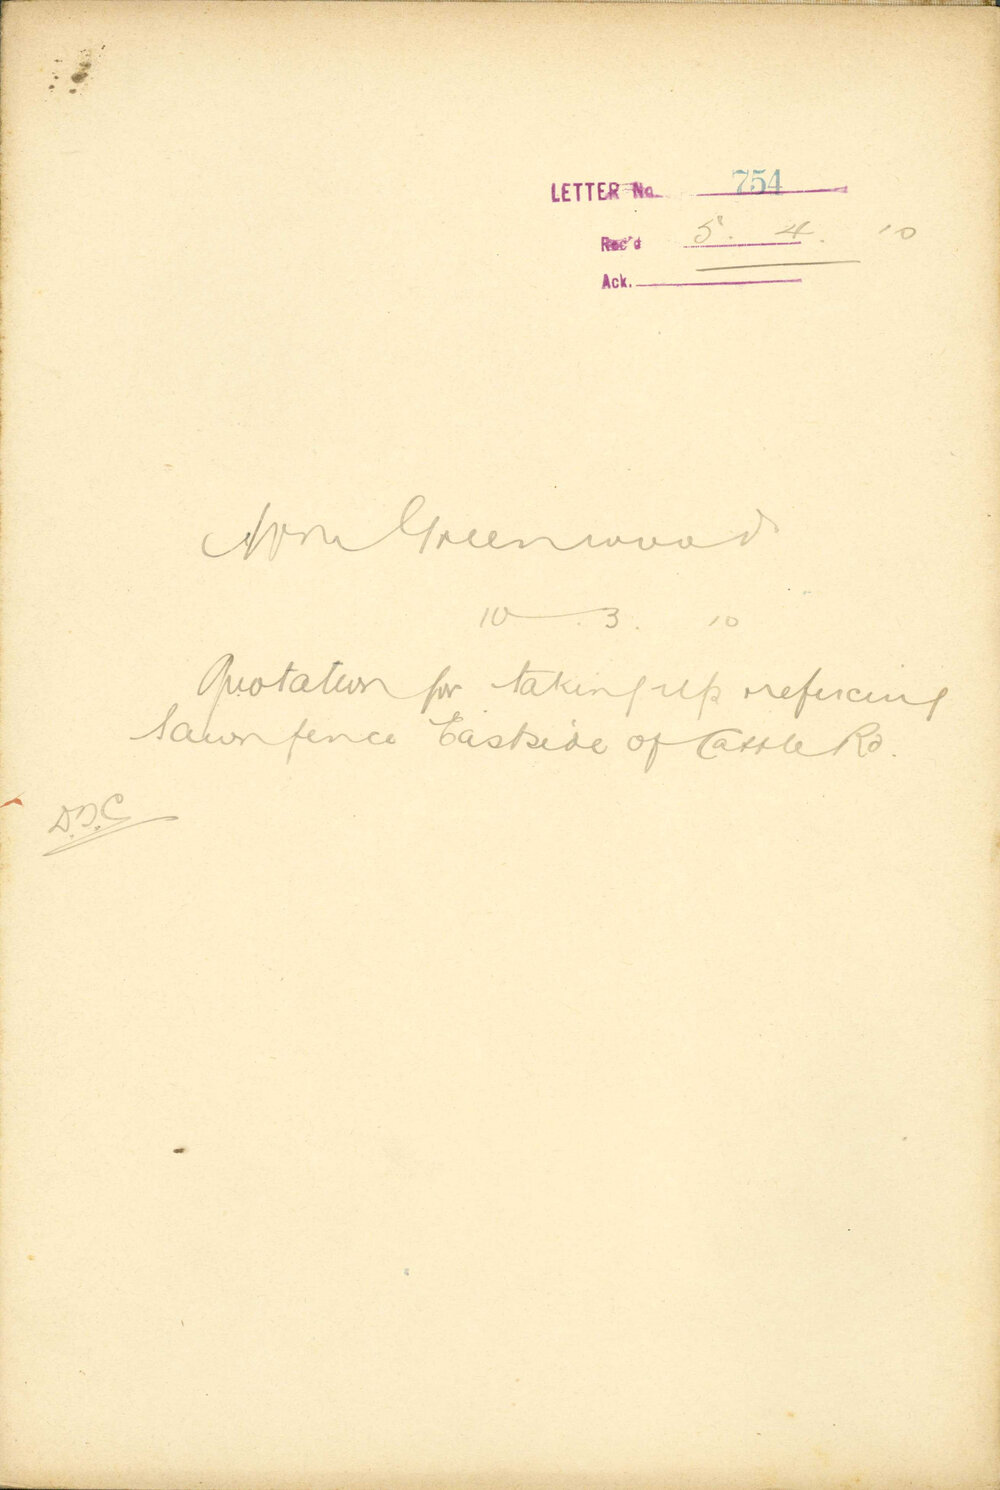 LETTER No. 754
Rec'd 5. 4. 10
Ack.
Wm Greenwood
10 . 3. 10
Quotation for taking up refixing
Sawn fence Eastside of Cattle Rd.